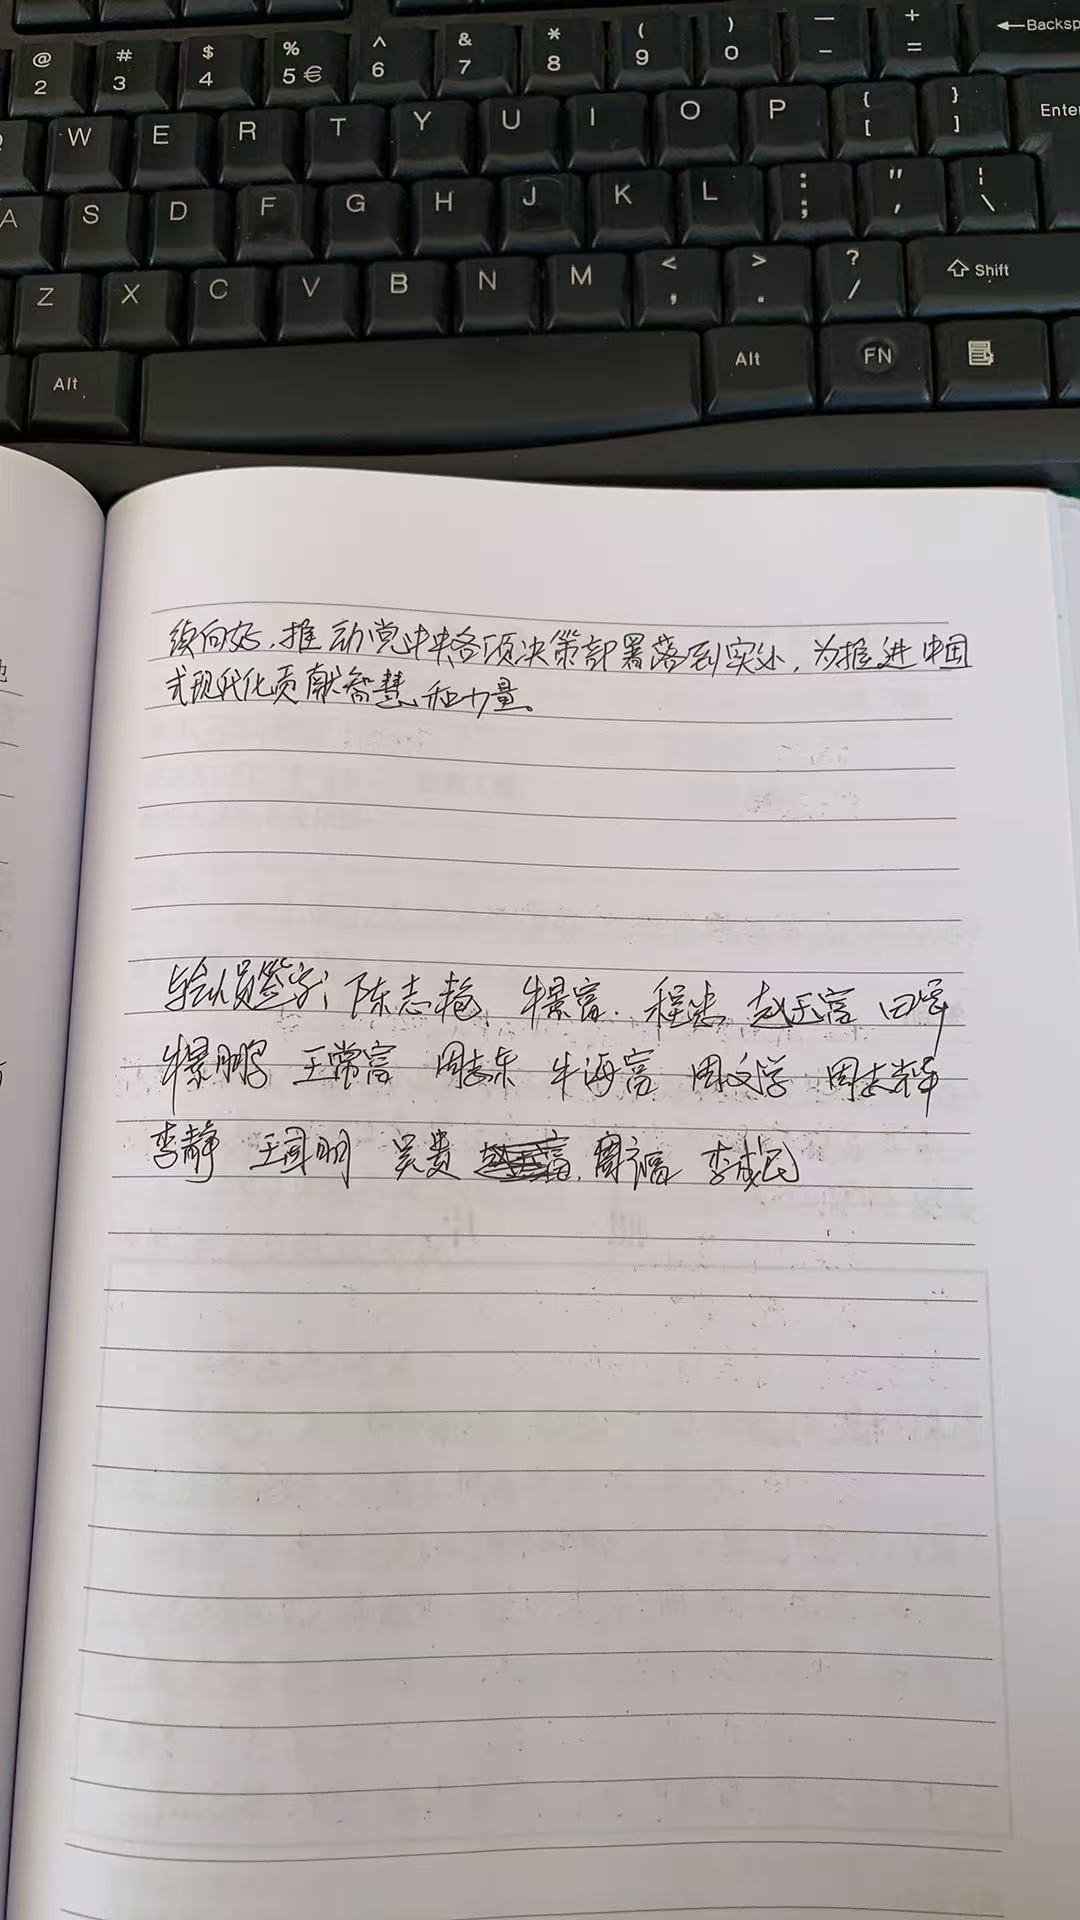 @ # $ % ^ & * ( ) — +
2 3 4 5 € 6 7 8 9 0 - = ←Backsp
W E R T Y U I O P { [ } ] Enter
A S D F G H J K L : ; " ' ¦ \
Z X C V B N M < , > . ? / Shift
Alt Alt FN
续向好,推动党中央各项决策部署落到实处,为推进中国
式现代化贡献智慧和力量。
与会人员签字: 陈志艳 牛景富 程忠 赵玉富
牛景鹏 王常富 周志东 牛海富 周文学 周志辉
李静 吴贵 周福 李成民